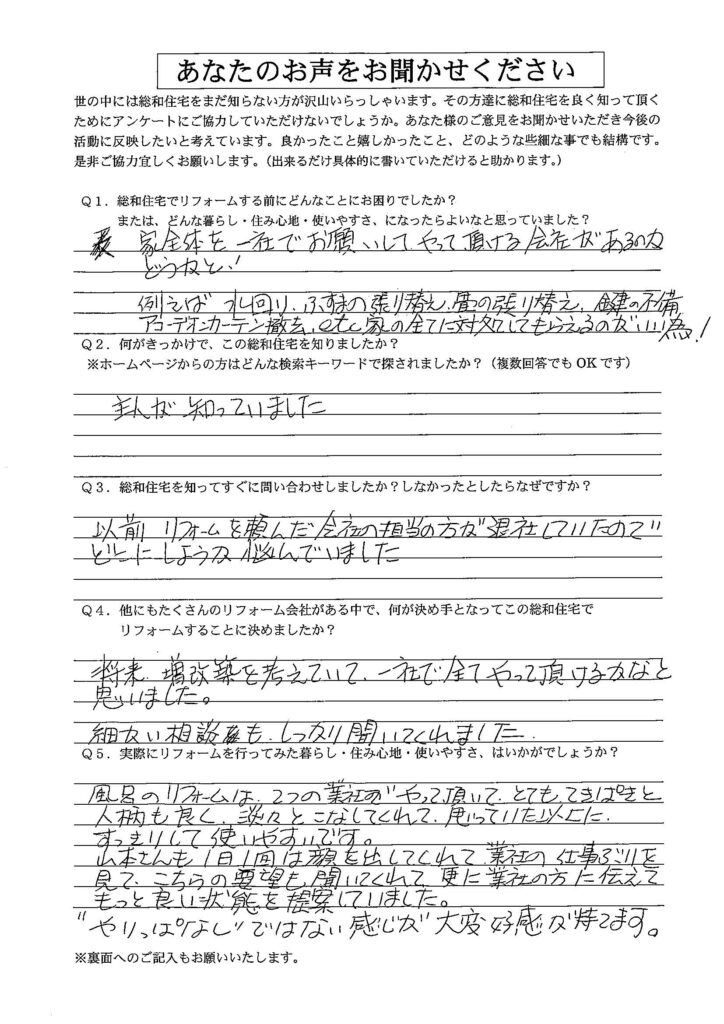 あなたのお声をお聞かせください
世の中には総和住宅をまだ知らない方が沢山いらっしゃいます。その方達に総和住宅を良く知って頂く
ためにアンケートにご協力していただけないでしょうか。あなた様のご意見をお聞かせいただき今後の
活動に反映したいと考えています。良かったこと嬉しかったこと、どのような些細な事でも結構です。
是非ご協力宜しくお願いします。（出来るだけ具体的に書いていただけると助かります。）
Q1．総和住宅でリフォームする前にどんなことにお困りでしたか？
または、どんな暮らし・住み心地・使いやすさ、になったらよいなと思っていました？
家全体を一社でお願いしてやって頂ける会社があるのか
どうかと！
例えば 水回り、ふすまの張り替え、畳の張り替え、鍵の不備
アコーデオンカーテン撤去、etc 家の全てに対処してもらえるのがいい為！
Q2．何がきっかけで、この総和住宅を知りましたか？
※ホームページからの方はどんな検索キーワードで探されましたか？（複数回答でもOKです）
主人が知っていました
Q3．総和住宅を知ってすぐに問い合わせしましたか？しなかったとしたらなぜですか？
以前 リフォームを頼んだ会社の担当の方が退社していたので
どこにしようか悩んでいました
Q4．他にもたくさんのリフォーム会社がある中で、何が決め手となってこの総和住宅で
リフォームすることに決めましたか？
将来、増改築を考えていて、一社で全てやって頂けるかなと
思いました。
細かい相談も、しっかり聞いてくれました
Q5．実際にリフォームを行ってみた暮らし・住み心地・使いやすさ、はいかがでしょうか？
風呂のリフォームは、2つの業社がやって頂いて、とても、てきぱきと
人柄も良く、淡々とこなしてくれて、思っていた以上に、
すっきりして使いやすいです。
山本さんも1日1回は顔を出してくれて業社の仕事ぶりを
見て、こちらの要望も聞いてくれて、更に業社の方に伝えて
もっと良い状態を提案していました。
"やりっぱなし"ではない感じが大変好感が持てます。
※裏面へのご記入もお願いいたします。